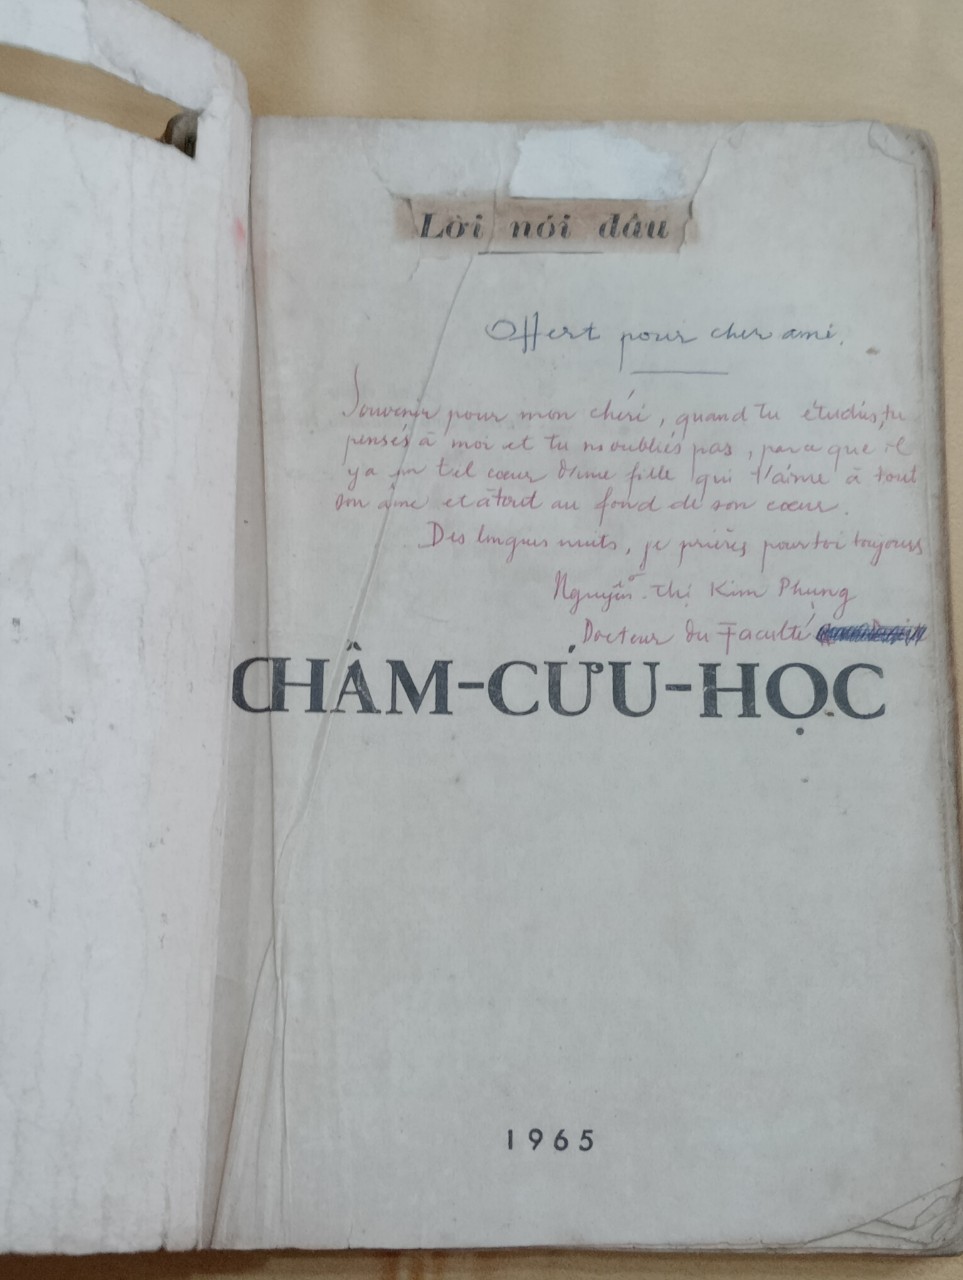 Lời nói đầu
Offert pour cher ami.
Souvenir pour mon chéri, quand tu étudiés, tu
pensés à moi et tu m'oubliés pas, parce que il
y a un tel cœur d'une fille qui t'aime à tout
son âme et à tout au fond de son cœur.
Des longues nuits, je prières pour toi toujours
Nguyễn Thị Kim Phụng
Docteur du Faculté
CHÂM-CỨU-HỌC
1965